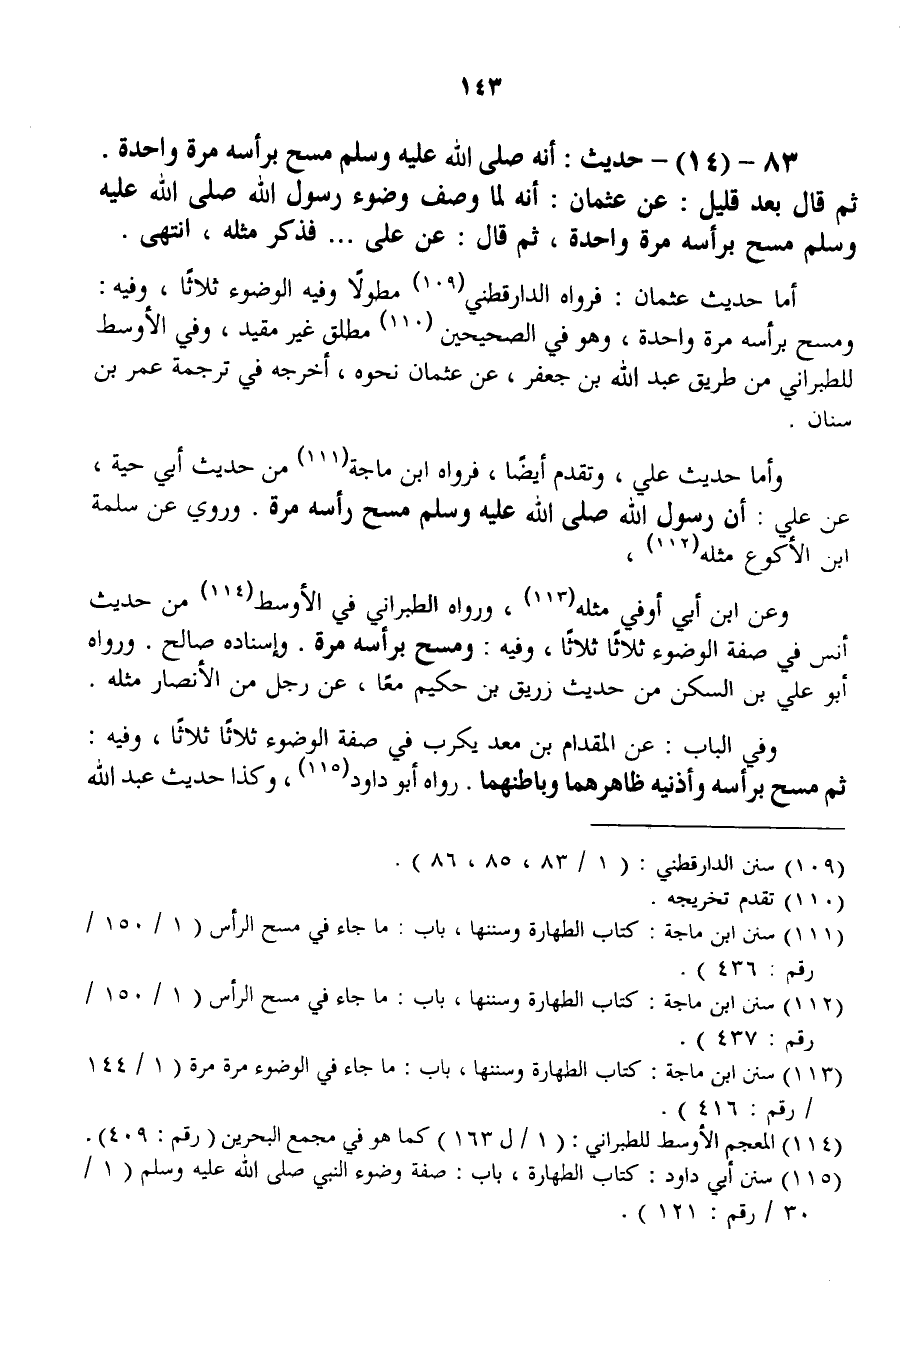 ١٤٣
٨٣ – (١٤) – حديث : أنه صلى الله عليه وسلم مسح برأسه مرة واحدة .
ثم قال بعد قليل : عن عثمان : أنه لما وصف وضوء رسول الله صلى الله عليه
وسلم مسح برأسه مرة واحدة ، ثم قال : عن على ... فذكر مثله ، انتهى .
أما حديث عثمان : فرواه الدارقطني(١٠٩) مطولًا وفيه الوضوء ثلاثًا ، وفيه :
ومسح برأسه مرة واحدة ، وهو في الصحيحين (١١٠) مطلق غير مقيد ، وفي الأوسط
للطبراني من طريق عبد الله بن جعفر ، عن عثمان نحوه ، أخرجه في ترجمة عمر بن
سنان .
وأما حديث علي ، وتقدم أيضًا ، فرواه ابن ماجة(١١١) من حديث أبي حية ،
عن علي : أن رسول الله صلى الله عليه وسلم مسح رأسه مرة . وروي عن سلمة
ابن الأكوع مثله(١١٢) ،
وعن ابن أبي أوفي مثله(١١٣) ، ورواه الطبراني في الأوسط(١١٤) من حديث
أنس في صفة الوضوء ثلاثًا ثلاثًا ، وفيه : ومسح برأسه مرة . وإسناده صالح . ورواه
أبو علي بن السكن من حديث زريق بن حكيم معًا ، عن رجل من الأنصار مثله .
وفي الباب : عن المقدام بن معد يكرب في صفة الوضوء ثلاثًا ثلاثًا ، وفيه :
ثم مسح برأسه وأذنيه ظاهرهما وباطنهما . رواه أبو داود(١١٥) ، وكذا حديث عبد الله
(١٠٩) سنن الدارقطني : ( ١ / ٨٣ ، ٨٥ ، ٨٦ ) .
(١١٠) تقدم تخريجه .
(١١١) سنن ابن ماجة : كتاب الطهارة وسننها ، باب : ما جاء في مسح الرأس ( ١ / ١٥٠ /
رقم : ٤٣٦ ) .
(١١٢) سنن ابن ماجة : كتاب الطهارة وسننها ، باب : ما جاء في مسح الرأس ( ١ / ١٥٠ /
رقم : ٤٣٧ ) .
(١١٣) سنن ابن ماجة : كتاب الطهارة وسننها ، باب : ما جاء في الوضوء مرة مرة ( ١ / ١٤٤
/ رقم : ٤١٦ ) .
(١١٤) المعجم الأوسط للطبراني : ( ١ / ل ١٦٣ ) كما هو في مجمع البحرين ( رقم : ٤٠٩) .
(١١٥) سنن أبي داود : كتاب الطهارة ، باب : صفة وضوء النبي صلى الله عليه وسلم ( ١ /
٣٠ / رقم : ١٢١ ) .